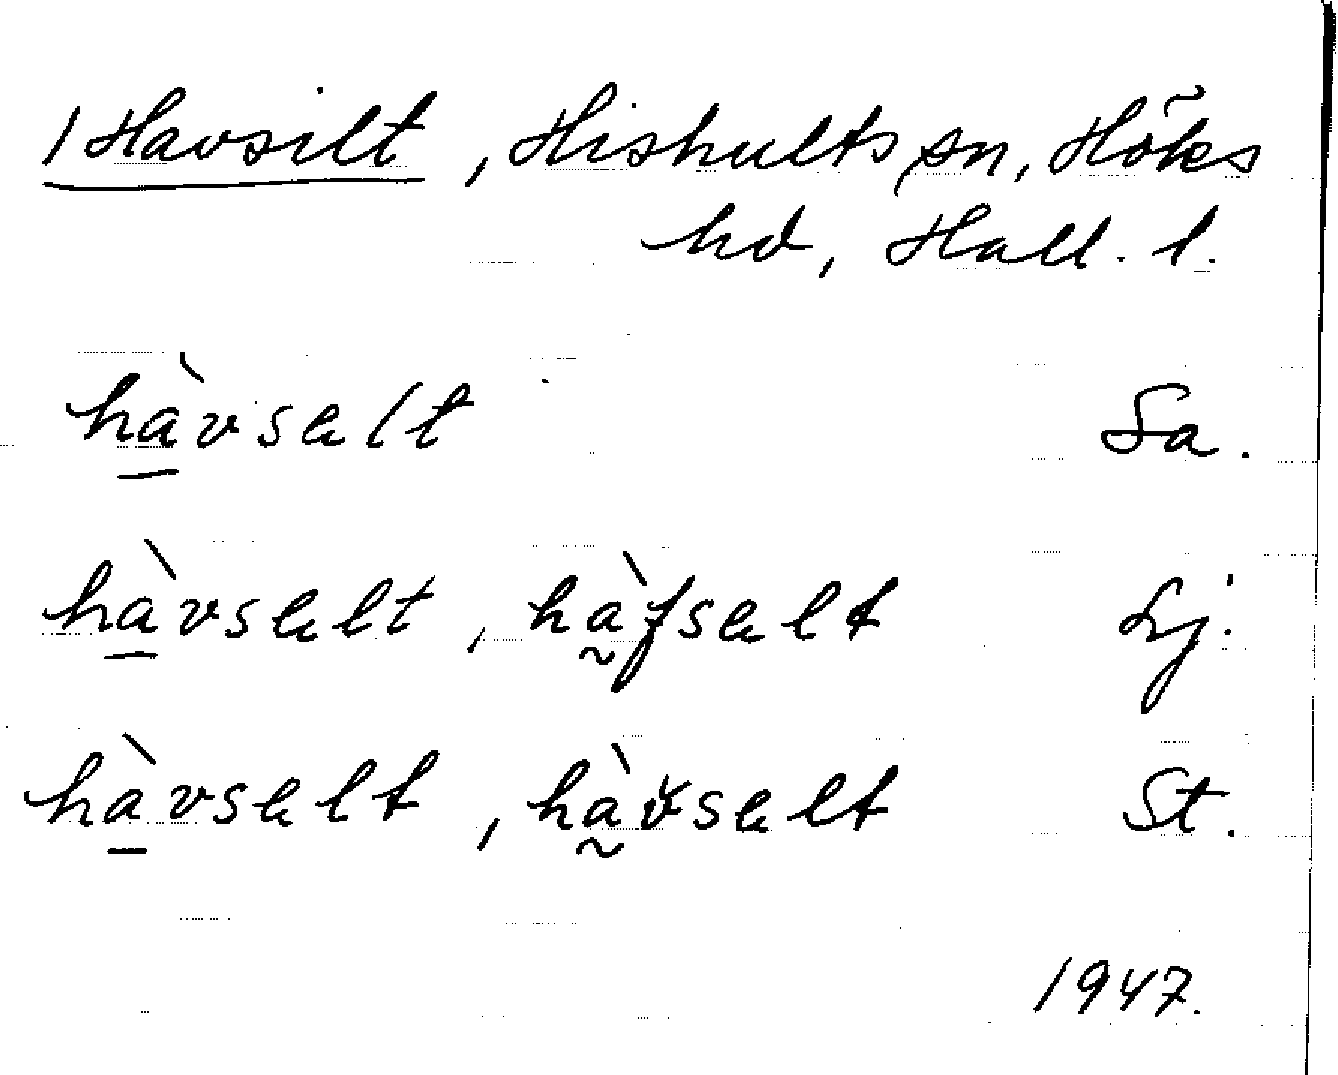 1 Havsilt, Hishults sn, Höks
hd, Hall. l.
hàvsalt Sa.
hàvsalt, hàfsalt Lj.
hàvsalt, hàvsalt St.
1947.